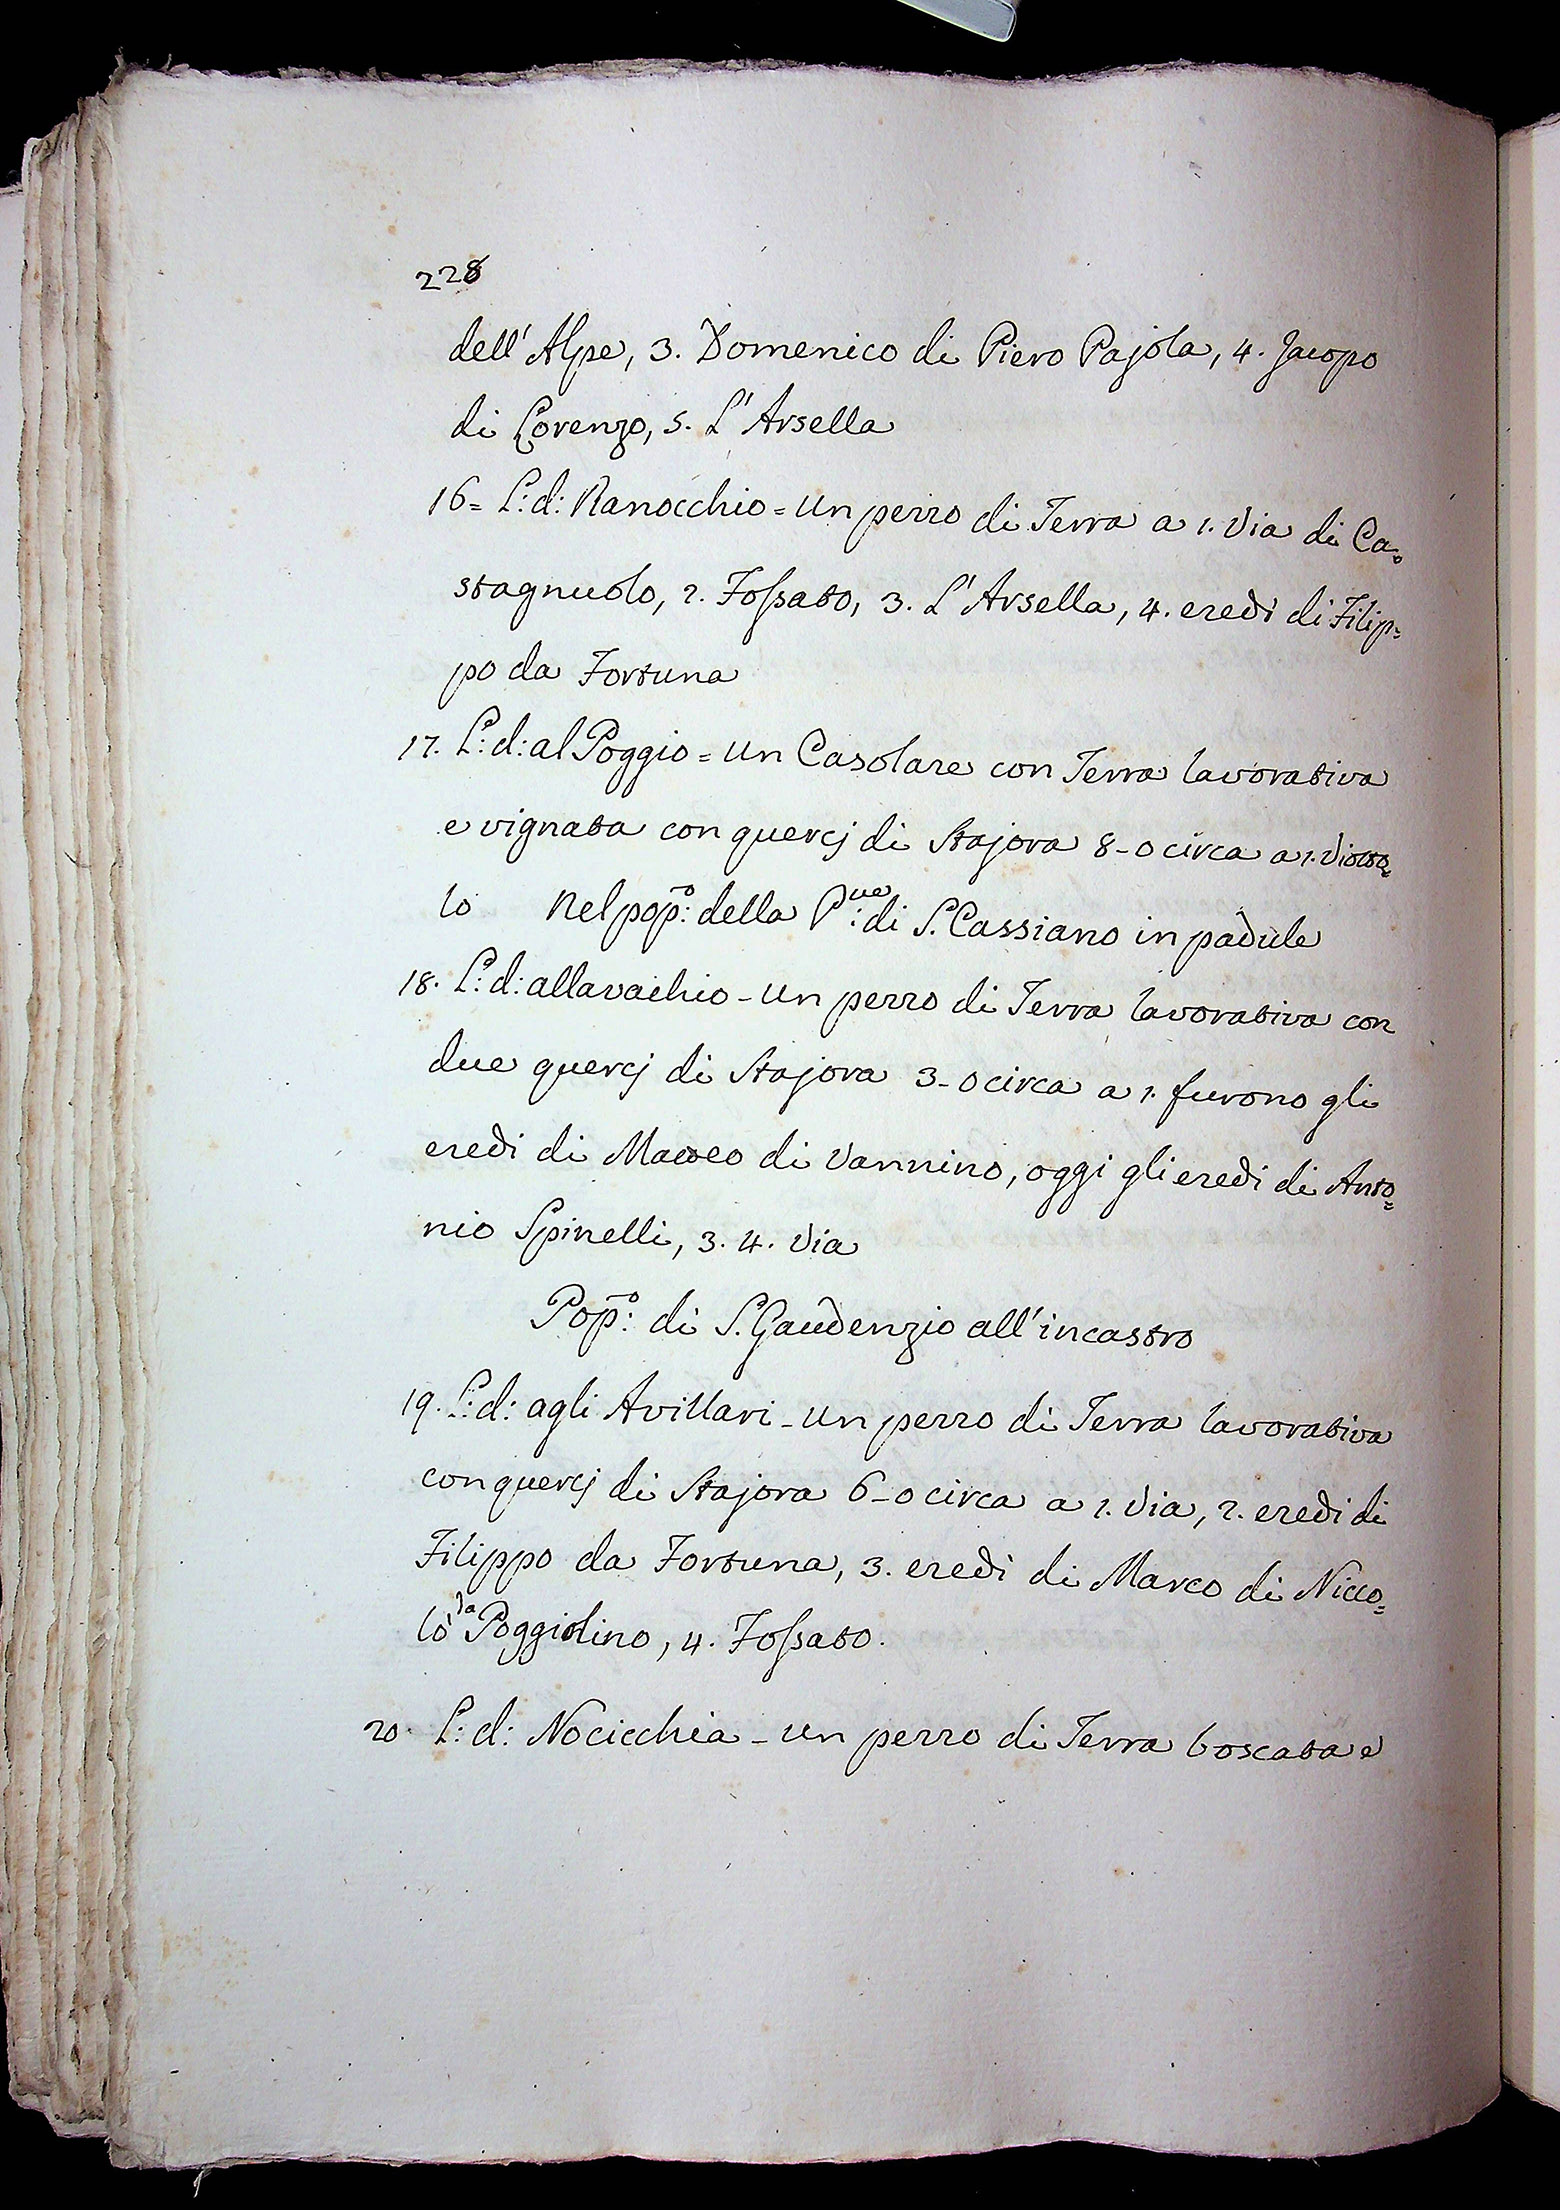 228
dell' Alpe, 3. Domenico di Piero Pajola, 4. Jacopo
di Lorenzo, 5. L' Arsella
16= L: d: Ranocchio = un pezzo di Terra a 1. Via di Ca=
stagnuolo, 2. Fossato, 3. L' Arsella, 4. eredi di Filip=
po da Fortuna
17. L: d: al Poggio = un Casolare con Terra lavorativa
e vignata con quercj di Stajora 8-0 circa a 1. Viotto=
lo nel pop:º della P:ve di S. Cassiano in padule
18. L: d: allavachio - un pezzo di Terra lavorativa con
due quercj di Stajora 3-0 circa a 1. furono gli
eredi di Matteo di Vannino, oggi gli eredi di Anto=
nio Spinelli, 3. 4. Via
Pop:º di S. Gaudenzio all' incastro
19. L: d: agli Avillari - un pezzo di Terra lavorativa
con quercj di Stajora 6-0 circa a 1. Via, 2. eredi di
Filippo da Fortuna, 3. eredi di Marco di Nicco=
lò da Poggiolino, 4. Fossato.
20. L: d: Nocicchia - un pezzo di Terra boscata e